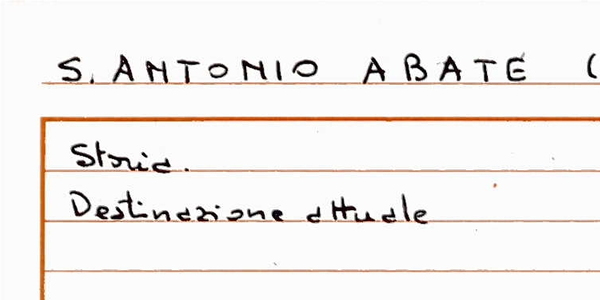 S. ANTONIO ABATE (
Storia.
Destinazione attuale